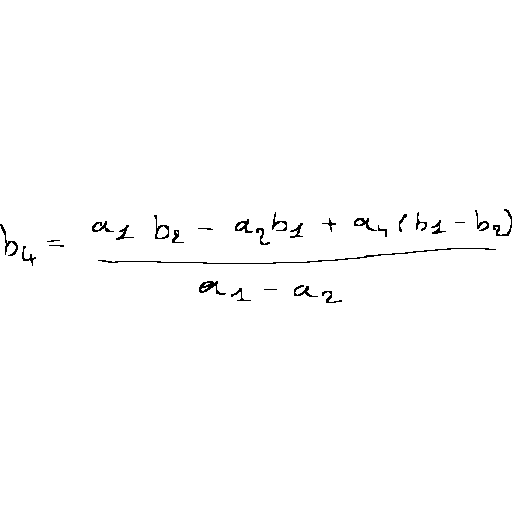 b_4 = \frac{a_1 b_2 - a_2 b_1 + a_4 (b_1 - b_2)}{a_1 - a_2}